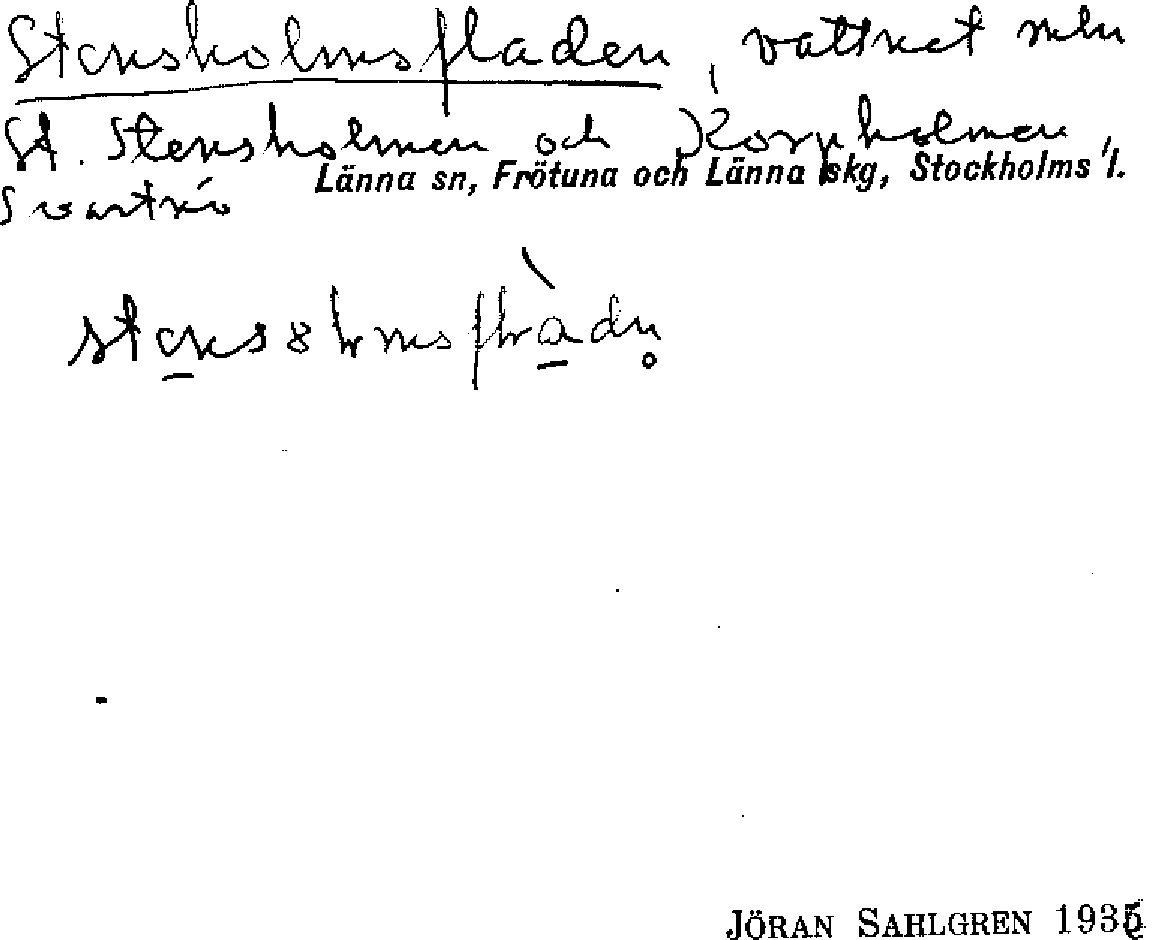 Stensholmsfladen, vattnet mln
St. Stensholmen och Korpholmen,
Länna sn, Frötuna och Länna skg, Stockholms l.
Svartnö
JÖRAN SAHLGREN 1935